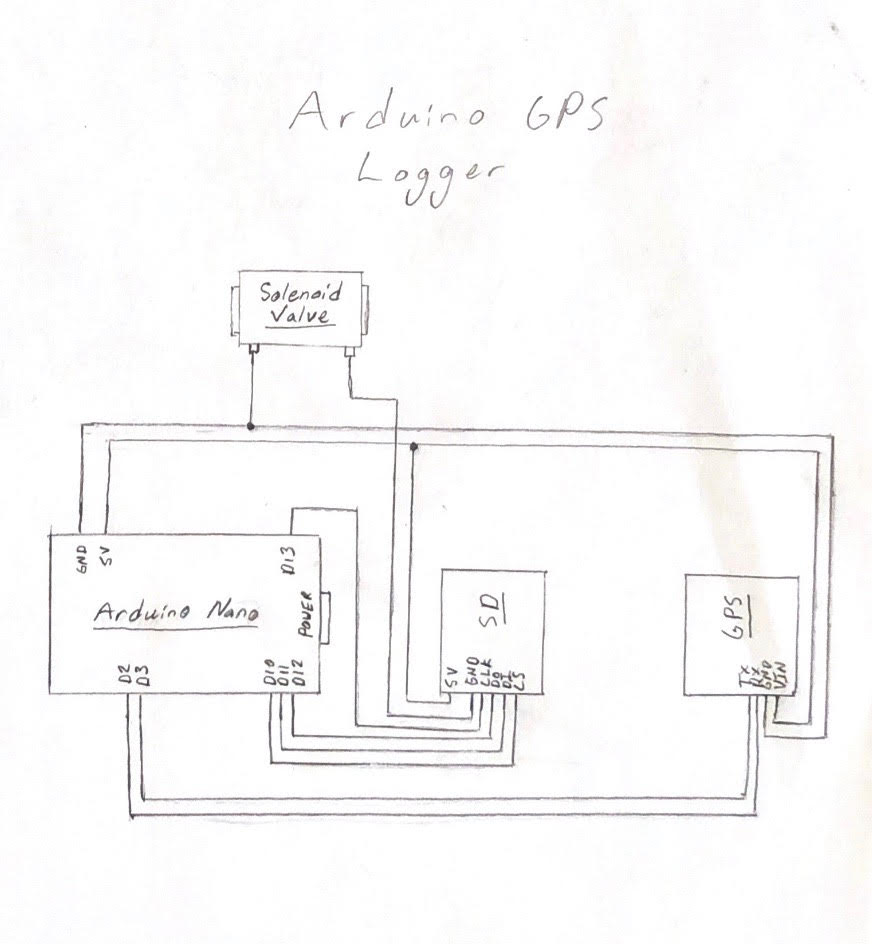 Arduino GPS
Logger
Solenoid
Valve
GND
5V
D13
Arduino Nano
POWER
D2
D3
D10
D11
D12
SD
5V
GND
CLK
DO
DI
CS
GPS
TX
RX
GND
VIN